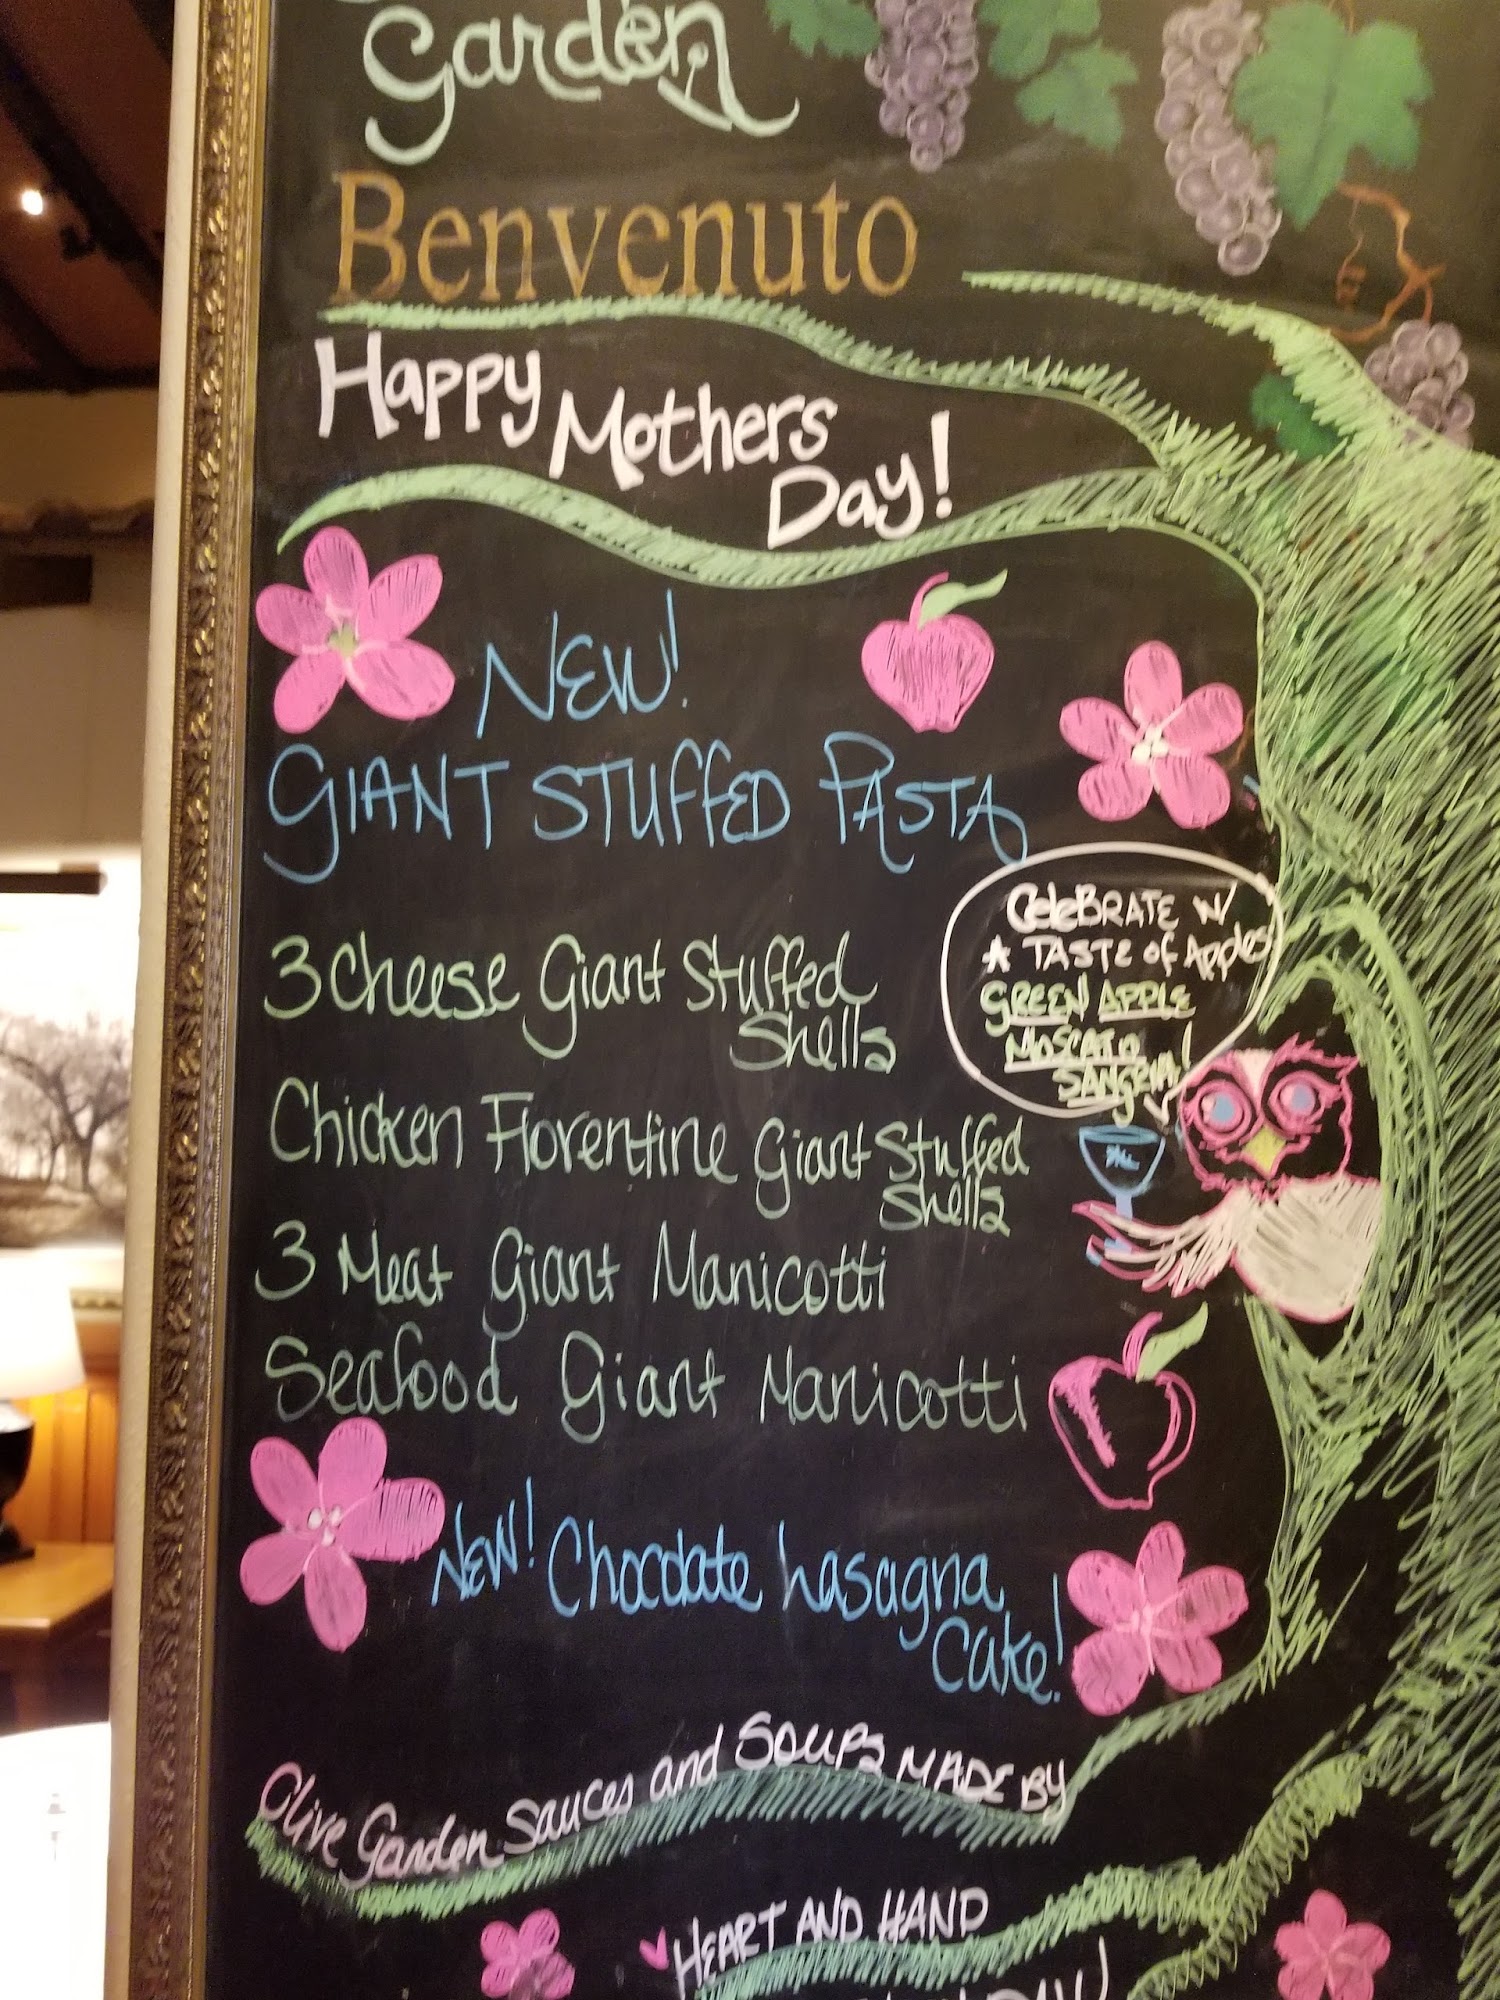 Garden
Benvenuto
Happy Mothers
Day!
NEW!
GIANT STUFFED PASTA
Celebrate w/
A Taste of Apples
Green Apple
Moscato
Sangria!
3 Cheese Giant Stuffed
Shells
Chicken Florentine Giant Stuffed
Shells
3 Meat Giant Manicotti
Seafood Giant Manicotti
NEW! Chocolate Lasagna
Cake!
Olive Garden Sauces and Soups MADE BY
HEART AND HAND